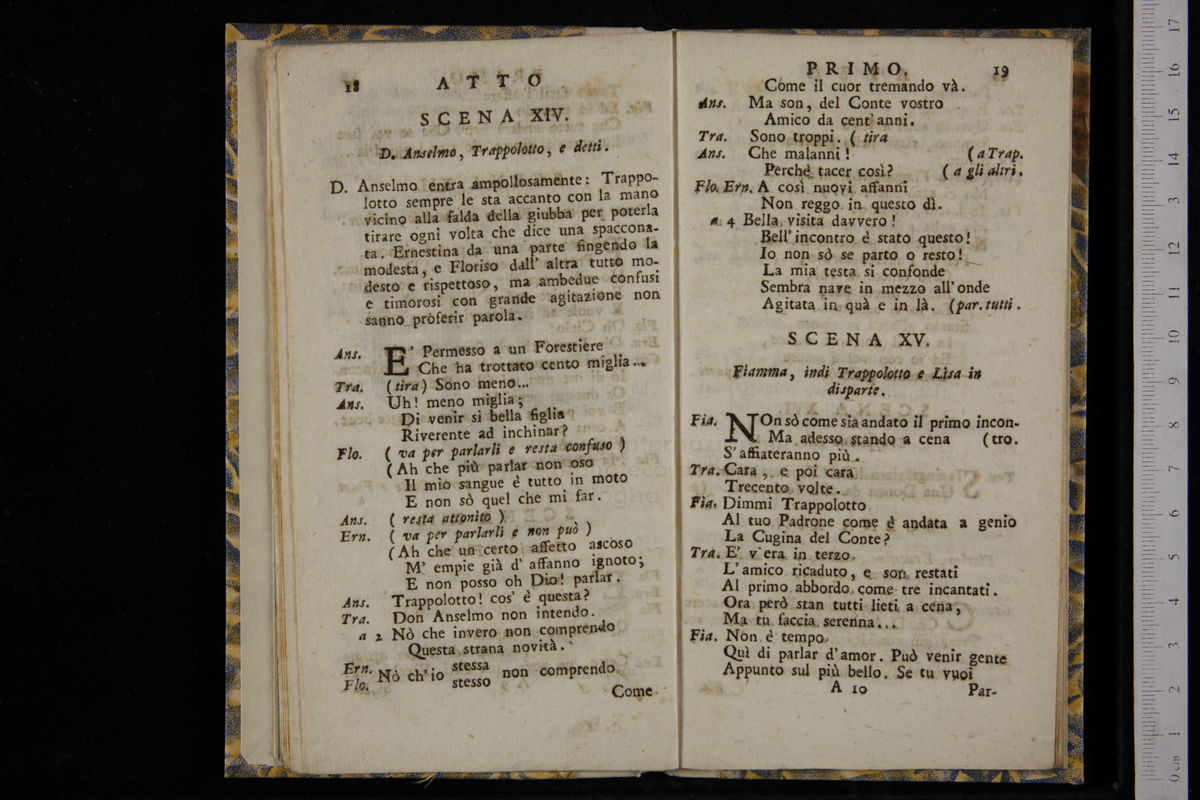 18 ATTO
SCENA XIV.
D. Anselmo, Trappolotto, e detti.
D. Anselmo entra ampollosamente: Trappo-
lotto sempre le sta accanto con la mano
vicino alla falda della giubba per poterla
tirare ogni volta che dice una spaccona-
ta. Ernestina da una parte fingendo la
modesta, e Floriso dall' altra tutto mo-
desto e rispettoso, ma ambedue confusi
e timorosi con grande agitazione non
sanno proferir parola.
Ans. E' Permesso a un Forestiere
Che ha trottato cento miglia...
Tra. (tira) Sono meno...
Ans. Uh! meno miglia;
Di venir si bella figlia
Riverente ad inchinar?
Flo. ( va per parlarli e resta confuso )
(Ah che più parlar non oso
Il mio sangue è tutto in moto
E non sò quel che mi far.
Ans. ( resta attonito )
Ern. ( va per parlarli e non può )
(Ah che un certo affetto ascoso
M' empie già d' affanno ignoto;
E non posso oh Dio! parlar.
Ans. Trappolotto! cos' è questa?
Tra. Don Anselmo non intendo.
a 2 Nò che invero non comprendo
Questa strana novità.
Ern. Nò ch'io stessa non comprendo
Flo. stesso
Come
PRIMO. 19
Come il cuor tremando và.
Ans. Ma son, del Conte vostro
Amico da cent' anni.
Tra. Sono troppi. ( tira
Ans. Che malanni! (a Trap.
Perchè tacer così? ( a gli altri.
Flo. Ern. A così nuovi affanni
Non reggo in questo dì.
a 4 Bella visita davvero!
Bell' incontro è stato questo!
Io non sò se parto o resto!
La mia testa si confonde
Sembra nave in mezzo all' onde
Agitata in quà e in là. (par. tutti.
SCENA XV.
Fiamma, indi Trappolotto e Lisa in
disparte.
Fia. NOn sò come sia andato il primo incon-
Ma adesso stando a cena (tro.
S' affiateranno più.
Tra. Cara, e poi cara
Trecento volte.
Fia. Dimmi Trappolotto
Al tuo Padrone come è andata a genio
La Cugina del Conte?
Tra. E' v' era in terzo
L' amico ricaduto, e son restati
Al primo abbordo come tre incantati.
Ora però stan tutti lieti a cena,
Ma tu faccia serenna...
Fia. Non è tempo
Quì di parlar d'amor. Può venir gente
Appunto sul più bello. Se tu vuoi
A 10 Par-
0 cm 1 2 3 4 5 6 7 8 9 10 11 12 13 14 15 16 17